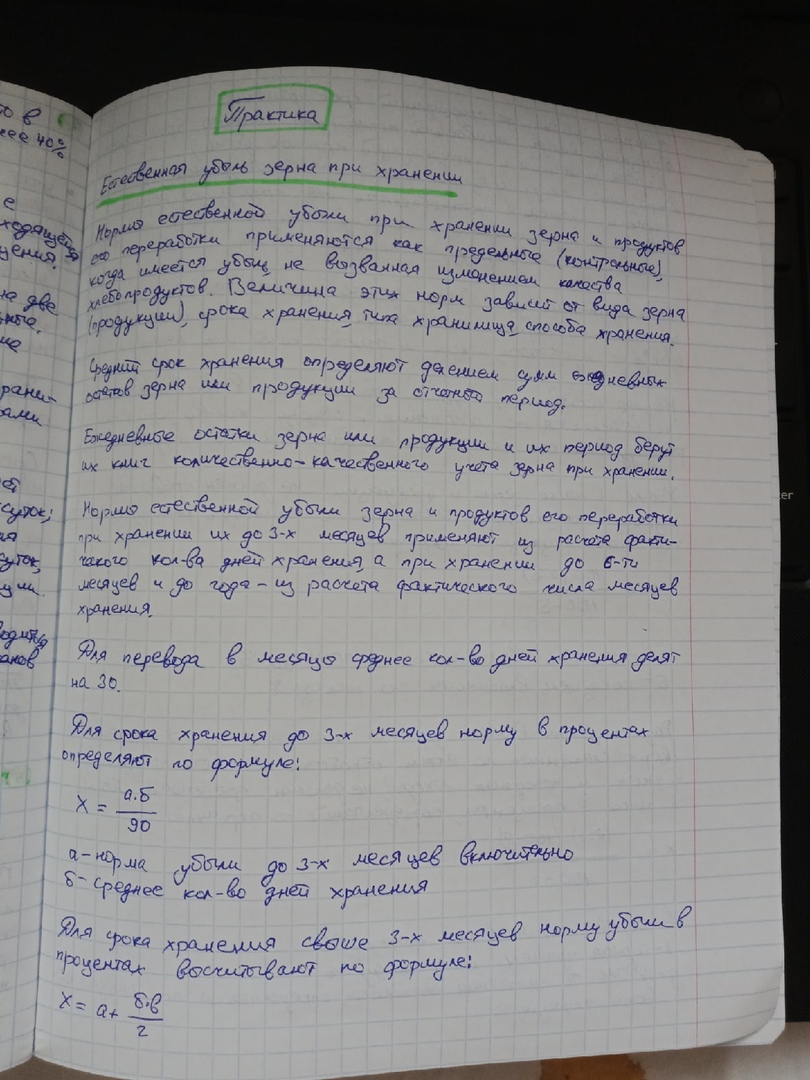 то в
нее 40%
е
ходящегся
щения.
на две
ьные.
ние
рани-
рами
суток;
суток,
ции
водитья
ранов
Практика
Естественная убыль зерна при хранении
Нормы естественной убыли при хранении зерна и продуктов
его переработки применяются как предельные (контрольные),
когда имеется убыль, не вызванная изменением качества
хлебопродуктов. Величина этих норм зависит от вида зерна
(продукции), срока хранения, типа хранилища, способа хранения.
Средний срок хранения определяют делением сумм ежедневных
остатков зерна или продукции за отчетный период.
Ежедневные остатки зерна или продукции и их период берут
их книг количественно-качественного учета зерна при хранении.
Нормы естественной убыли зерна и продуктов его переработки
при хранении их до 3-х месяцев применяют из расчета факти-
чакого кол-ва дней хранения, а при хранении до 6-ти
месяцев и до года - из расчета фактического числа месяцев
хранения.
Для перевода в месяцы среднее кол-во дней хранения делят
на 30.
Для срока хранения до 3-х месяцев норму в процентах
определяют по формуле:
X = а·б / 90
а - норма убыли до 3-х месяцев включительно
б - среднее кол-во дней хранения
Для срока хранения свыше 3-х месяцев норму убыли в
процентах высчитывают по формуле:
X = а + б·в / г